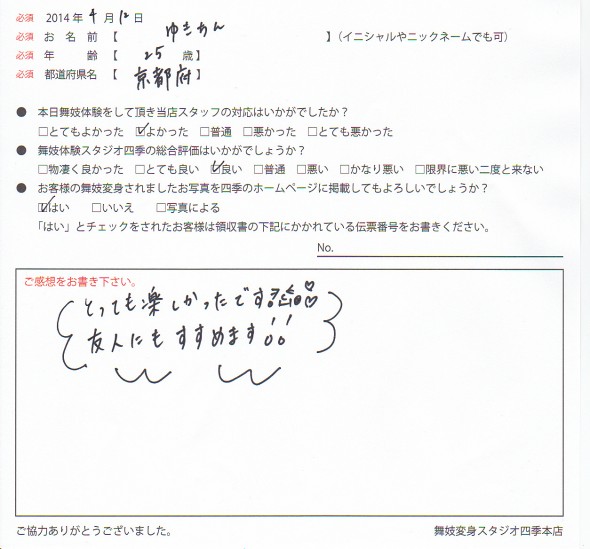 必須 2014年4月12日
必須 お名前【 ゆきあん 】(イニシャルやニックネームでも可)
必須 年齢【 25 歳】
必須 都道府県名【 京都府
● 本日舞妓体験をして頂き当店スタッフの対応はいかがでしたか?
□とてもよかった ☑よかった □普通 □悪かった □とても悪かった
● 舞妓体験スタジオ四季の総合評価はいかがでしょうか?
□物凄く良かった □とても良い ☑良い □普通 □悪い □かなり悪い □限界に悪い二度と来ない
● お客様の舞妓変身されましたお写真を四季のホームページに掲載してもよろしいでしょうか?
☑はい □いいえ □写真による
「はい」とチェックをされたお客様は領収書の下記にかかれている伝票番号をお書きください。
No.
ご感想をお書き下さい。
とっても楽しかったです
友人にもすすめます!!
ご協力ありがとうございました。 舞妓変身スタジオ四季本店